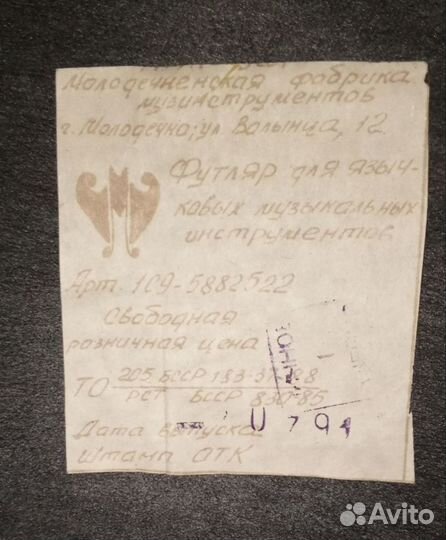 Молодечненская фабрика
музинструментов
г. Молодечно, ул. Волынца, 12.
Футляр для языч-
ковых музыкальных
инструментов
Арт. 1С9-5882522
Свободная
розничная цена
ТО 205 БССР 183-37-88
РСТ БССР 830-85
Дата выпуска
Штамп ОТК
Avito